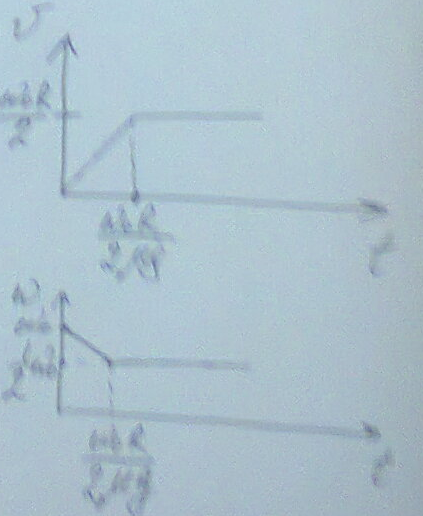 v
ω₀R
2
ω₀R
2μg
t
ω
ω₀
½ω₀
ω₀R
2μg
t